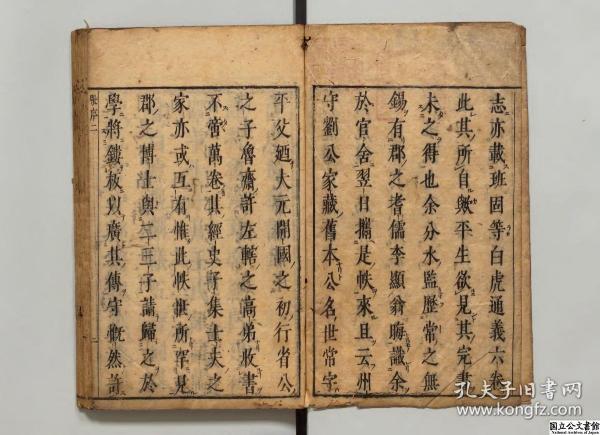 志亦載班固等白虎通義六卷
此其所自與平生欲見其完書
未之得也余分水監歷常之無
錫有郡之耆儒李顯翁晦識余
於官舍翌日攜是帙來且云州
守劉公家藏舊本公名世常字
平父迺大元開國之初行省公
之子魯齋許左轄之高弟收書
不啻萬卷其經史子集士夫之
家亦或互有惟此帙世所罕見
郡之博士與二三子請歸之於
學將鏤板以廣其傳守慨然許
張序二
孔夫子旧书网
www.kongfz.com
国立公文書館
National Archives of Japan